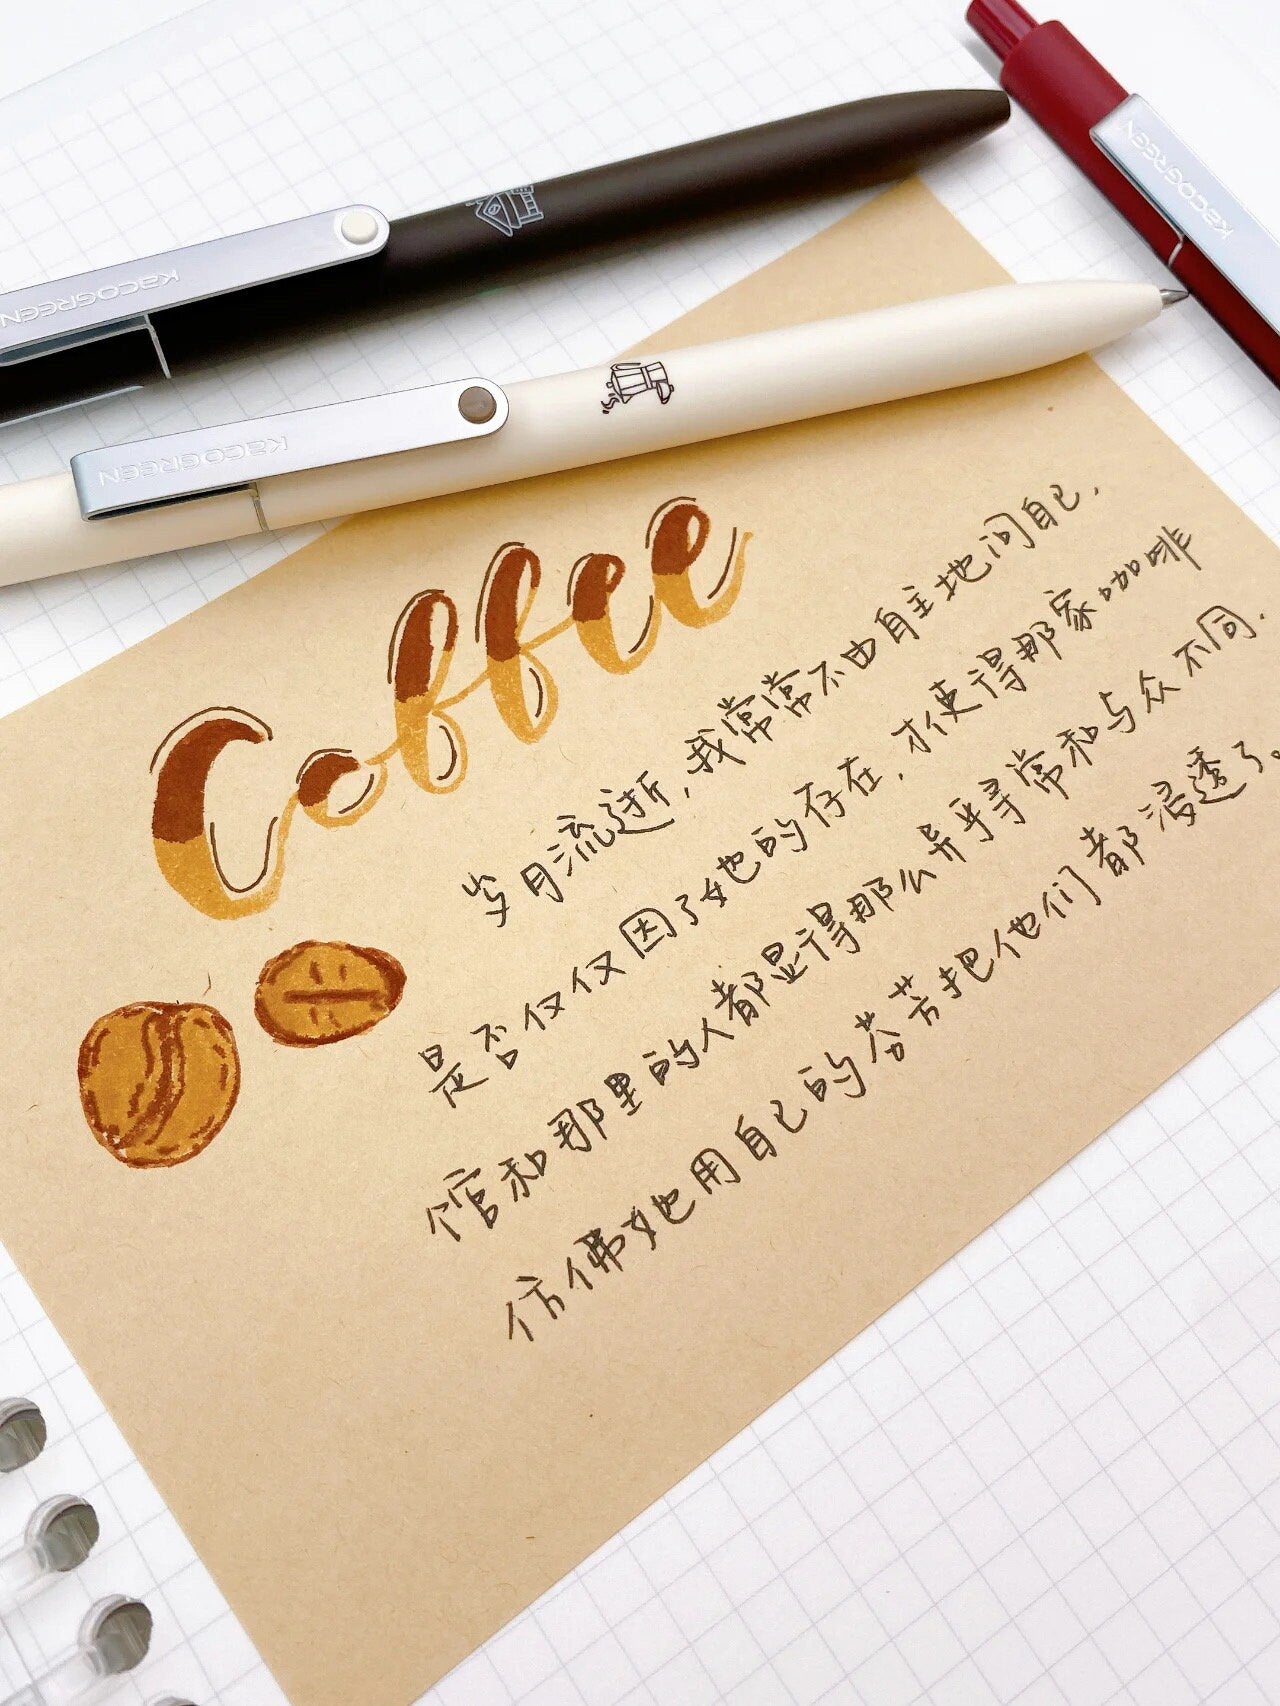 KACOGREEN
KACOGREEN
KACOGREEN
Coffee
岁月流逝,我常常不由自主地问自己,
是否仅仅因了她的存在,才使得那家咖啡
馆和那里的人都显得那么异乎寻常和与众不同.
仿佛她用自己的芬芳把他们都浸透了。